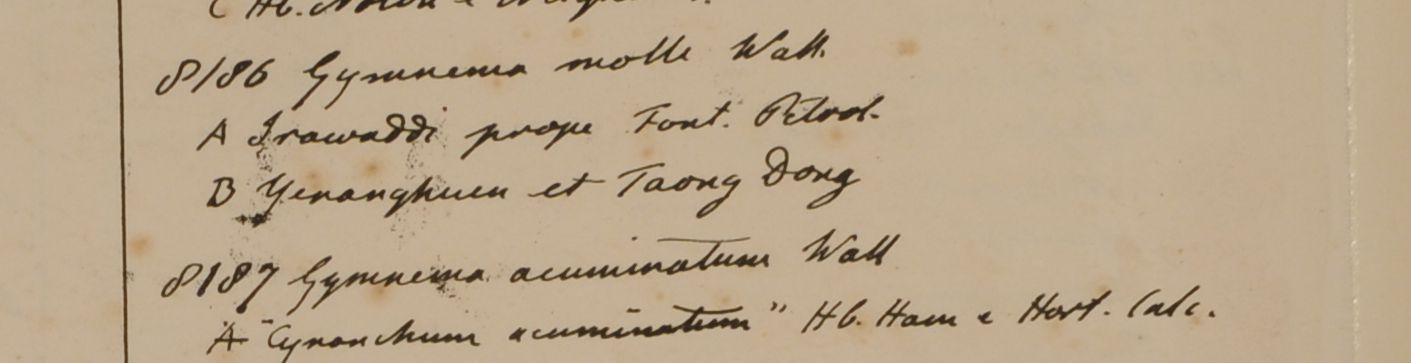 8186 Gymnema molle Wall.
A Irawaddi prope Font. Petrol.
B Yenanghuen et Taong Dong
8187 Gymnema acuminatum Wall
A "Cynanchum acuminatum" Hb. Ham e Hort. Calc.